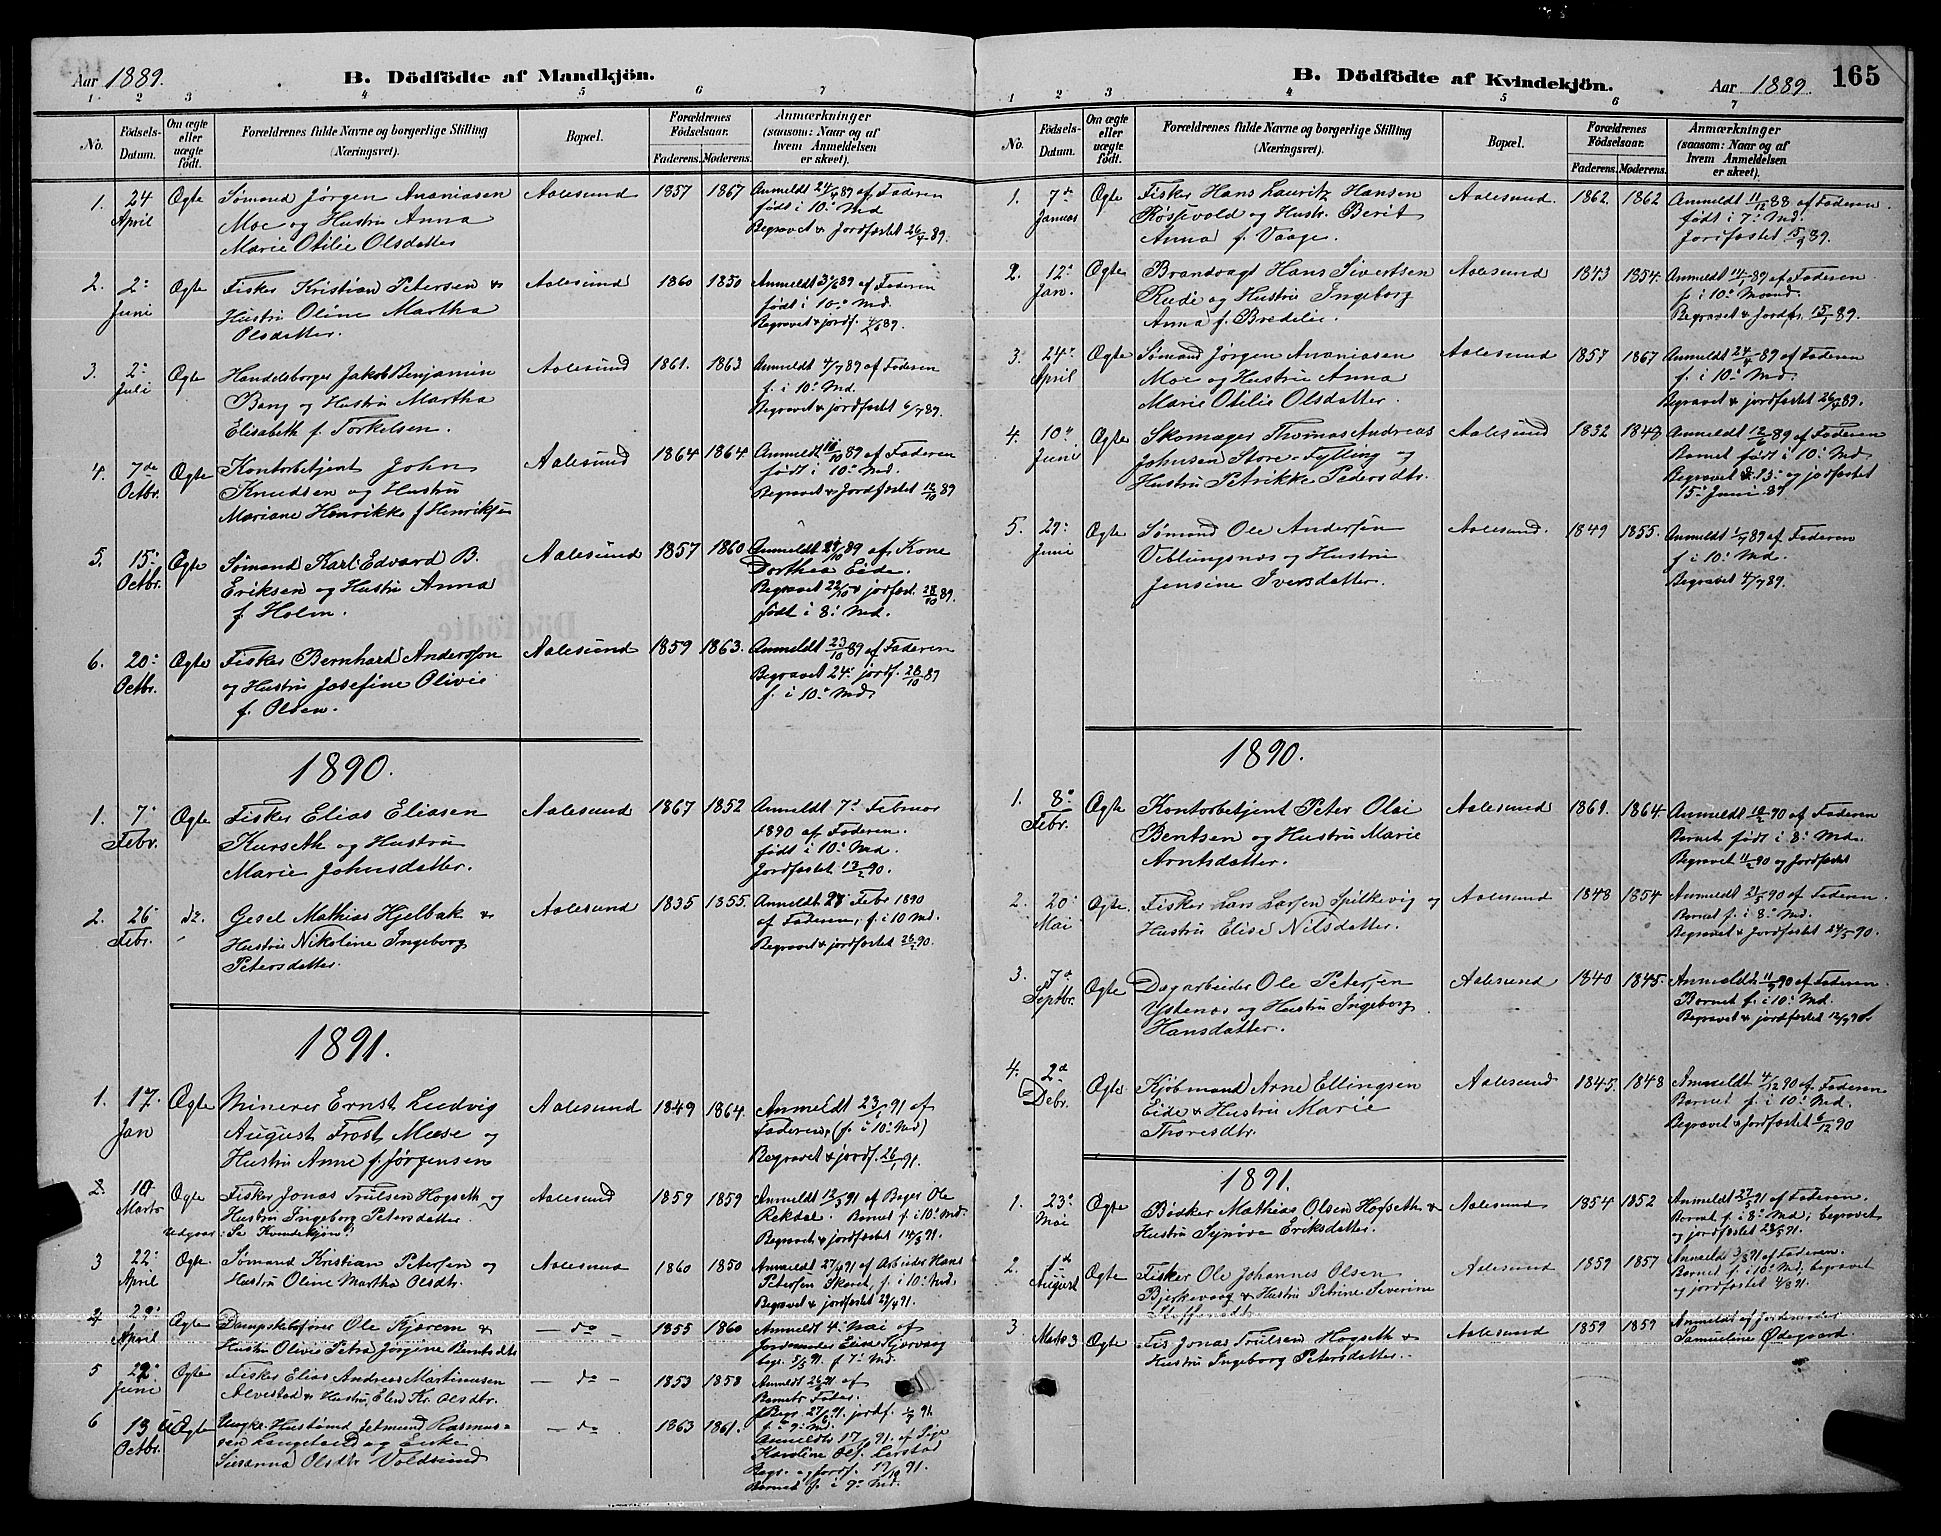 Aar 1889.
B. Dödfödte af Mandkjön.
1 2 3 4 5 6 7
No.
Födsels-
Datum.
Om ægte
eller
uægte
födt.
Forældrenes fulde Navne og borgerlige Stilling
(Næringsvei).
Bopæl.
Forældrenes
Födselsaar.
Faderens. Moderens.
Anmærkninger
(saasom: Naar og af
hvem Anmeldelsen
er skeet).
1. 24 Ægte Sømand Jørgen Ananiasen Aalesund 1857 1867 Anmeldt 24/4 89 af Faderen
April Moe og Hustru Anna født i 10: Md
Marie Otilie Olsdatter Begravet & Jordfæstet 26/4 89.
2. 2: Ægte Fisker Kristian Petersen & Aalesund 1860 1850 Anmeldt 3/6 89 af Faderen
Juni Hustru Oline Martha født i 10: Md.
Olsdatter. Begravet & jordf. 4/6 89.
3. 2: Ægte Handelsborger Jakob Benjamin Aalesund 1861. 1863 Anmeldt 4/7 89 af Faderen
Juli Bang og Hustru Martha f. i 10: Md.
Elisabeth f. Torkelsen. Begravet & jordfæstet 6/7 89.
4. 7de Ægte Kontorbetjent John Aalesund 1864 1864. Anmeldt 10/10 89 af Faderen
Octbr. Knudsen og Hustru født i 10: Md.
Mariane Henrikke f Henriksen Begravet & Jordfæstet 12/10 89
5. 15: Ægte Sømand Karl Edvard B. Aalesund 1857 1860 Anmeldt 21/10 89 af Kone
Octbr. Eriksen og Hustru Anna Dorthea Eide.
f. Holm. Begravet 22/10 & jordfæst. 28/10 89.
født i 8: Md.
6. 20: Ægte Fisker Bernhard Anderson Aalesund 1859 1863. Anmeldt 23/10 89 af Faderen
Octbr. og Hustru Josefine Olivie Begravet 24: jordf. 28/10 89
f. Olsen. f. i 10: Md.
1890.
1. 7: Ægte Fisker Elias Eliasen Aalesund 1867 1852 Anmeldt 7: Februar
Febr. Kurseth og Hustru 1890 af Faderen.
Marie Johnsdatter. født i 10: Md.
Jordfæstet 13/2 90.
2. 26 do. Gesel Mathias Hjelbak & Aalesund 1835 1855. Anmeldt 28: Febr 1890
Febr. Hustru Nikoline Ingeborg af Faderen, f. i 10 Md.
Petersdatter. Begravet & jordfæstet 90.
1891.
1. 17. Ægte Minerer Ernst Ludvig Aalesund 1849 1864. Anmeldt 23/1 91 af
Jan August Frost Meese og Faderen, (f. i 10: Md)
Hustru Anne f. Jørgensen Begravet & jordf. 26/1 91.
2. 10 Ægte Fisker Jonas Trulsen Hogseth og Aalesund 1859 1859 Anmeldt 12/3 91 af Bager Ole
Marts Hustru Ingeborg Petersdatter. Rekdal. Barnet f. i 10: Md.
Udgaar: Se Kvindekjøn Begravet & jordfæstet 14/3 91.
3 22: Ægte Sømand Kristian Petersen og Aalesund 1860 1850 Anmeldt 27/4 91 af Arbeider Hans
April Hustru Oline Martha Olsdtr. Petersen Skaret, f. i 10: Md.
Begravet & jordfæstet 29/4 91.
4 29: Ægte Dampskibsfører Ole Kjærem & — do — 1855 1860 Anmeldt 4: Mai af
April Hustru Olivie Petra Jørgine Berntsdtr Jordmoder Kjørvaag
begr. 5/5 91. f. 7: Md.
5 22: Ægte Fisker Elias Andreas Martinusen — do — 1853 1858 Anmeldt 26/6 91 af
Juni Alvestad & Hustru Elen Kr. Olsdtr. Barnets Fader.
Begr. 27/6 91. jordf. 91.
f. i 9: Md.
6 13 UÆgte Ungkr. Jetmund Rasmus- — do — 1863 1861. Anmeldt 17/10 91. af
Octbr. sen Langeland og Enke Karoline Ols.
Susanna Olsdtr Voldsund Begr. og jordf. 19/10 91.
Barnet f. i 9: Md.
B. Dödfödte af Kvindekjön.
Aar 1889.
165
1 2 3 4 5 6 7
No.
Födsels-
Datum.
Om ægte
eller
uægte
födt.
Forældrenes fulde Navne og borgerlige Stilling
(Næringsvei).
Bopæl.
Forældrenes
Födselsaar.
Faderens. Moderens.
Anmærkninger
(saasom: Naar og af
hvem Anmeldelsen
er skeet).
1. 7de Ægte Fisker Hans Lauritz Hansen Aalesund. 1862. 1862 Anmeldt 11/12 88 af Faderen.
Januar Røssevold og Hustr. Berit født i 7: Md.
Anna f. Vaage. Jordfæstet 89.
2. 12: Ægte Brandvagt Hans Sivertsen Aalesund 1843 1854. Anmeldt 14/1 89 af Faderen
Jan. Rudi og Hustru Ingeborg f. i 10: Maaned.
Anna f. Bredelie. Begravet & Jordfr. 15/1 89.
3. 24: Ægte Sømand Jørgen Ananiasen Aalesund 1857 1867 Anmeldt 24/4 89 af Faderen
April Moe og Hustru Anna f. i 10: Md.
Marie Otilie Olsdatter. Begravet & jordfæstet 26/4 89.
4. 10: Ægte Skomager Thomas Andreas Aalesund 1832 1848 Anmeldt 12/6 89 af Faderen
Juni Johnsen Store-Fylling og Barnet født i 10: Md
Hustru Petrikke Pedersdtr. Begravet d. 13: og jordfæstet
15: Juni 89
5. 29: Ægte Sømand Ole Andersen Aalesund. 1849 1855. Anmeldt 1/7 89 af Faderen
Juni Veblungsnæs og Hustru f i 10: Md.
Jensine Iversdatter. Begravet 4/7 89.
1890.
1. 8: Ægte Kontorbetjent Peter Olai Aalesund 1861. 1864. Anmeldt 10/2 90 af Faderen
Febr. Bentsen og Hustru Marie Barnet født i 8: Md.
Arntsdatter. Begravet 11/2 90 og Jordfæstet
2. 20: Ægte. Fisker Lars Larsen Spilkevig og Aalesund 1848 1854 Anmeldt 21/5 90 af Faderen.
Mai Hustru Elise Nilsdatter. Barnet f. i 8: Md.
Begravet & Jordfæstet 24/5 90.
3. 7d Ægte Dagarbeider Ole Petersen Aalesund 1840 1845. Anmeldt 11/9 90 af Faderen.
Septbr. Ystenæs og Hustru Ingeborg Barnet f. i 10: Md.
Hansdatter. Begravet & jordfæstet 12/9 90.
4. 2d Ægte Kjøbmand Arne Ellingsen Aalesund 1845. 1848 Anmeldt 4/12 90 af Faderen
Debr. Eide & Hustru Marie Barnet f. i 10: Md.
Thoresdtr. Begravet & Jordfæstet 6/12 90
1891.
1. 23: Ægte Bødker Mathias Olsen Hofseth & Aalesund 1854 1852 Anmeldt 27/5 91 af Faderen.
Mai Hustru Synøve Eriksdatter. Barnet f. i 8: Md, begravet
og jordfæstet 28/5 91.
2. 1d Ægte Fisker Ole Johannes Olsen Aalesund 1859 1857 Anmeldt 3/8 91 af Faderen.
August Bjerkevaag & Hustru Petrine Severine Barnet f. i 10: Md, begravet
Steffensdtr. og jordfæstet 4/8 91.
3 Mats 3 Ægte Fis Jonas Trulsen Hogseth & Aalesund 1859 1859 Anmeldt af Jordemoder
Hustru Ingeborg Petersdatter. Samueline Ødegaard.